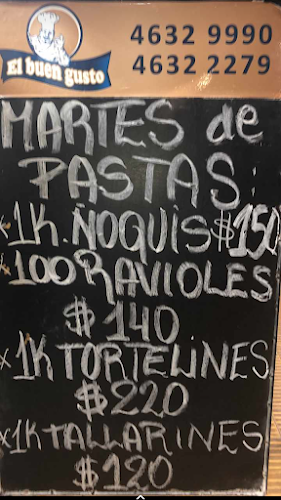 El buen gusto
4632 9990
4632 2279
MARTES de
PASTAS:
*1K. ÑOQUIS $150
*100 RAVIOLES
$140
*1K TORTELINES
$220
*1K TALLARINES
$120